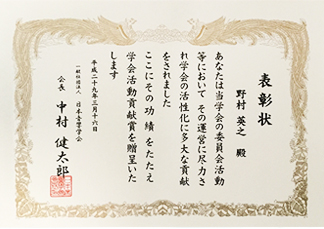 表彰状
野村 英之 殿
あなたは当学会の委員会活動
等において その運営に尽力さ
れ学会の活性化に多大な貢献
をされました
ここにその功績をたたえ
学会活動貢献賞を贈呈いた
します
平成二十九年三月十六日
一般社団法人 日本音響学会
会長 中村 健太郎